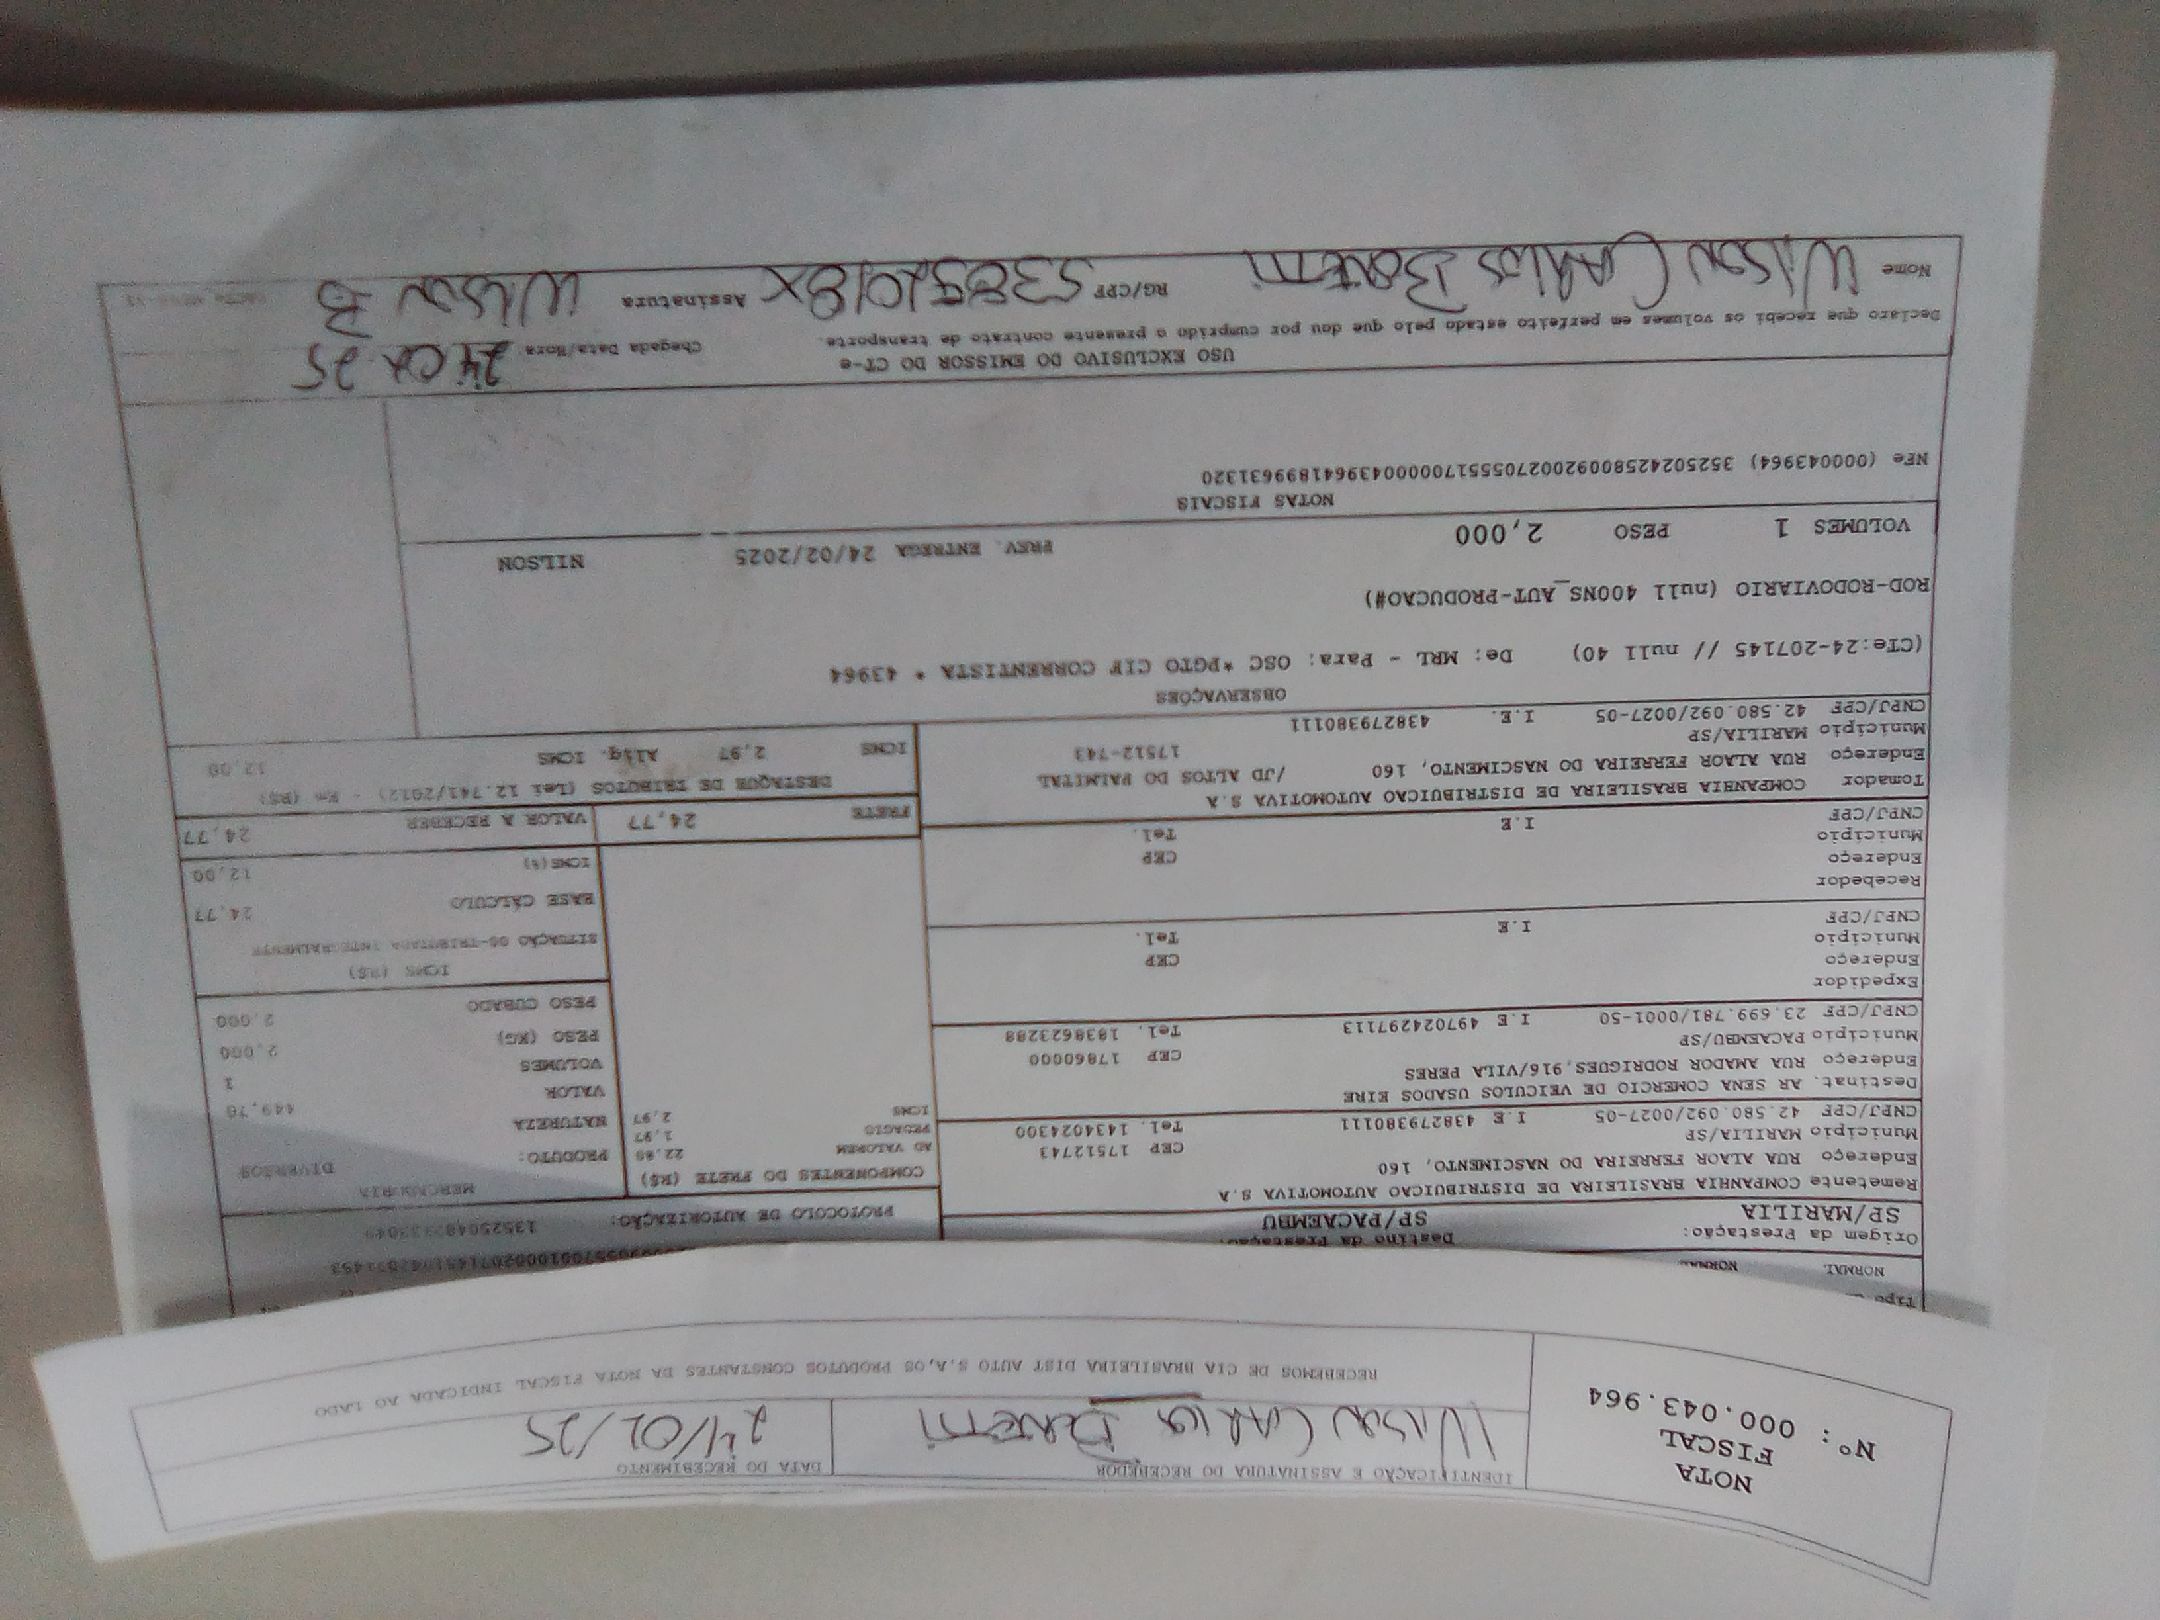 NOTA
FISCAL
Nº: 000.043.964
IDENTIFICAÇÃO E ASSINATURA DO RECEBEDOR
DATA DO RECEBIMENTO
24/02/25
RECEBEMOS DE CIA BRASILEIRA DIST AUTO S.A,OS PRODUTOS CONSTANTES DA NOTA FISCAL INDICADA AO LADO
NORMAL
Origem da Prestação:
SP/MARILIA
Destino da Prestação:
SP/PACAEMBU
PROTOCOLO DE AUTORIZAÇÃO:
Remetente COMPANHIA BRASILEIRA DE DISTRIBUICAO AUTOMOTIVA S.A
Endereço RUA ALAOR FERREIRA DO NASCIMENTO, 160
Município MARILIA/SP CEP 17512743
CNPJ/CPF 42.580.092/0027-05 I.E 438279380111 Tel. 1434024300
Destinat. AR SENA COMERCIO DE VEICULOS USADOS EIRE
Endereço RUA AMADOR RODRIGUES,916/VILA PERES
Município PACAEMBU/SP CEP 17860000
CNPJ/CPF 23.699.781/0001-50 I.E 497024297113 Tel. 1838623288
Expedidor
Endereço
Município CEP
CNPJ/CPF I.E Tel.
Recebedor
Endereço
Município CEP
CNPJ/CPF I.E Tel.
Tomador COMPANHIA BRASILEIRA DE DISTRIBUICAO AUTOMOTIVA S.A
Endereço RUA ALAOR FERREIRA DO NASCIMENTO, 160 /JD ALTOS DO PALMITAL
Município MARILIA/SP 17512-743
CNPJ/CPF 42.580.092/0027-05 I.E. 438279380111
COMPONENTES DO FRETE (R$)
AD VALOREM
PEDAGIO 1,97
ICMS 2,97
MERCADORIA
PRODUTO: DIVERSOS
NATUREZA
VALOR 449,76
VOLUMES 1
PESO (KG) 2,000
PESO CUBADO 2,000
ICMS (R$)
SITUAÇÃO 00-TRIBUTADA INTEGRALMENTE
BASE CÁLCULO 24,77
ICMS(%) 12,00
FRETE 24,77
VALOR A RECEBER 24,77
DESTAQUE DE TRIBUTOS (Lei 12.741/2012) - Em (R$)
ICMS 2,97 Alíq. ICMS 12,00
OBSERVAÇÕES
(CTe:24-207145 // null 40) De: MRL - Para: OSC *PGTO CIF CORRENTISTA * 43964
ROD-RODOVIARIO (null 400NS_AUT-PRODUCAO#)
VOLUMES 1 PESO 2,000
PREV. ENTREGA 24/02/2025 NILSON
NOTAS FISCAIS
NFe (000043964) 35250242580092002705551700000439641899631320
USO EXCLUSIVO DO EMISSOR DO CT-e
Declaro que recebi os volumes em perfeito estado pelo que dou por cumprido o presente contrato de transporte.
Chegada Data/Hora
Nome WILSON CARLOS
RG/CPF
Assinatura WILSON B